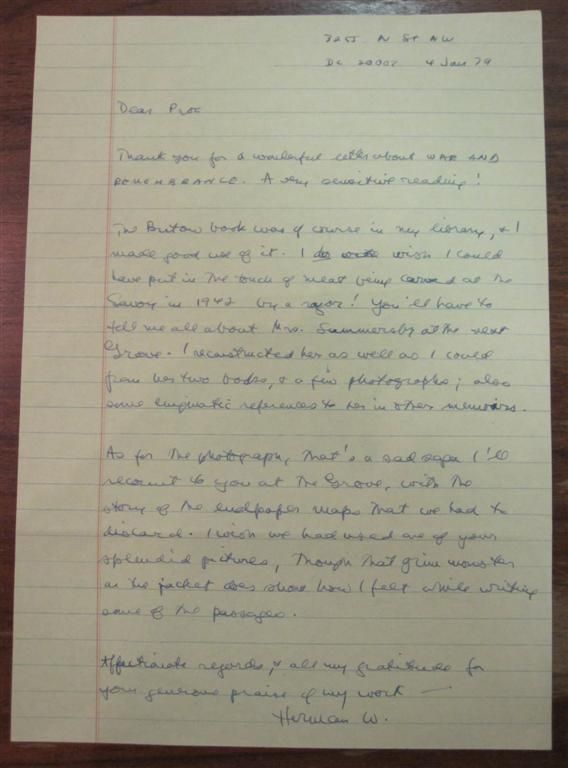 3255 N St NW
DC 20007 4 Jan 79
Dear Proc
Thank you for a wonderful letter about WAR AND
REMEMBRANCE. A very sensitive reading!
The Britow book was of course in my library, & I
made good use of it. I do wish I could
have put in the touch of meat being carved at the
Savoy in 1942 by a razor! You'll have to
tell me all about Mrs. Summersby at the next
Grove. I reconstructed her as well as I could
from her two books, & a few photographs; also
some enigmatic references to her in other memoirs.
As for the photograph, that's a sad saga I'll
recount to you at the Grove, with the
story of the endpaper maps that we had to
discard. I wish we had used one of your
splendid pictures, though that grim monster
on the jacket does show how I felt while writing
some of the passages.
Affectionate regards, & all my gratitude for
your generous praise of my work —
Herman W.